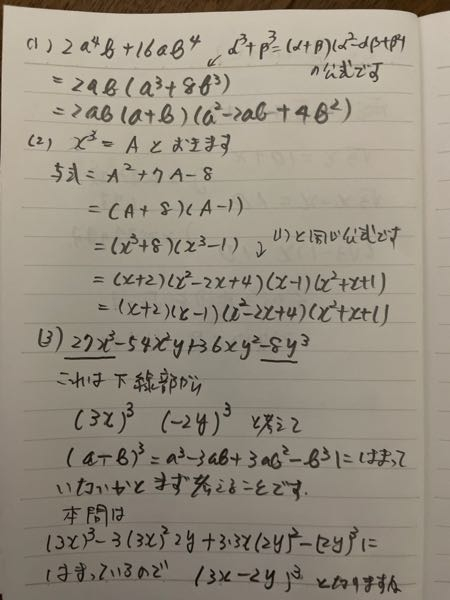 (1) 2a⁴b+16ab⁴ ↙ α³+β³=(α+β)(α²-αβ+β²)
の公式です
=2ab(a³+8b³)
=2ab(a+b)(a²-2ab+4b²)
(2) x³=Aとおきます
与式=A²+7A-8
=(A+8)(A-1)
=(x³+8)(x³-1) ↓ (1)と同じ公式です
=(x+2)(x²-2x+4)(x-1)(x²+x+1)
=(x+2)(x-1)(x²-2x+4)(x²+x+1)
(3) 27x³-54x²y+36xy²-8y³
これは下線部から
(3x)³ (-2y)³ と考えて
(a-b)³=a³-3ab+3ab²-b³にはまって
いないかとまず考えることです.
本問は
(3x)³-3(3x)²2y+3・3x(2y)²-(2y)³に
はまっているので (3x-2y)³ となりますね